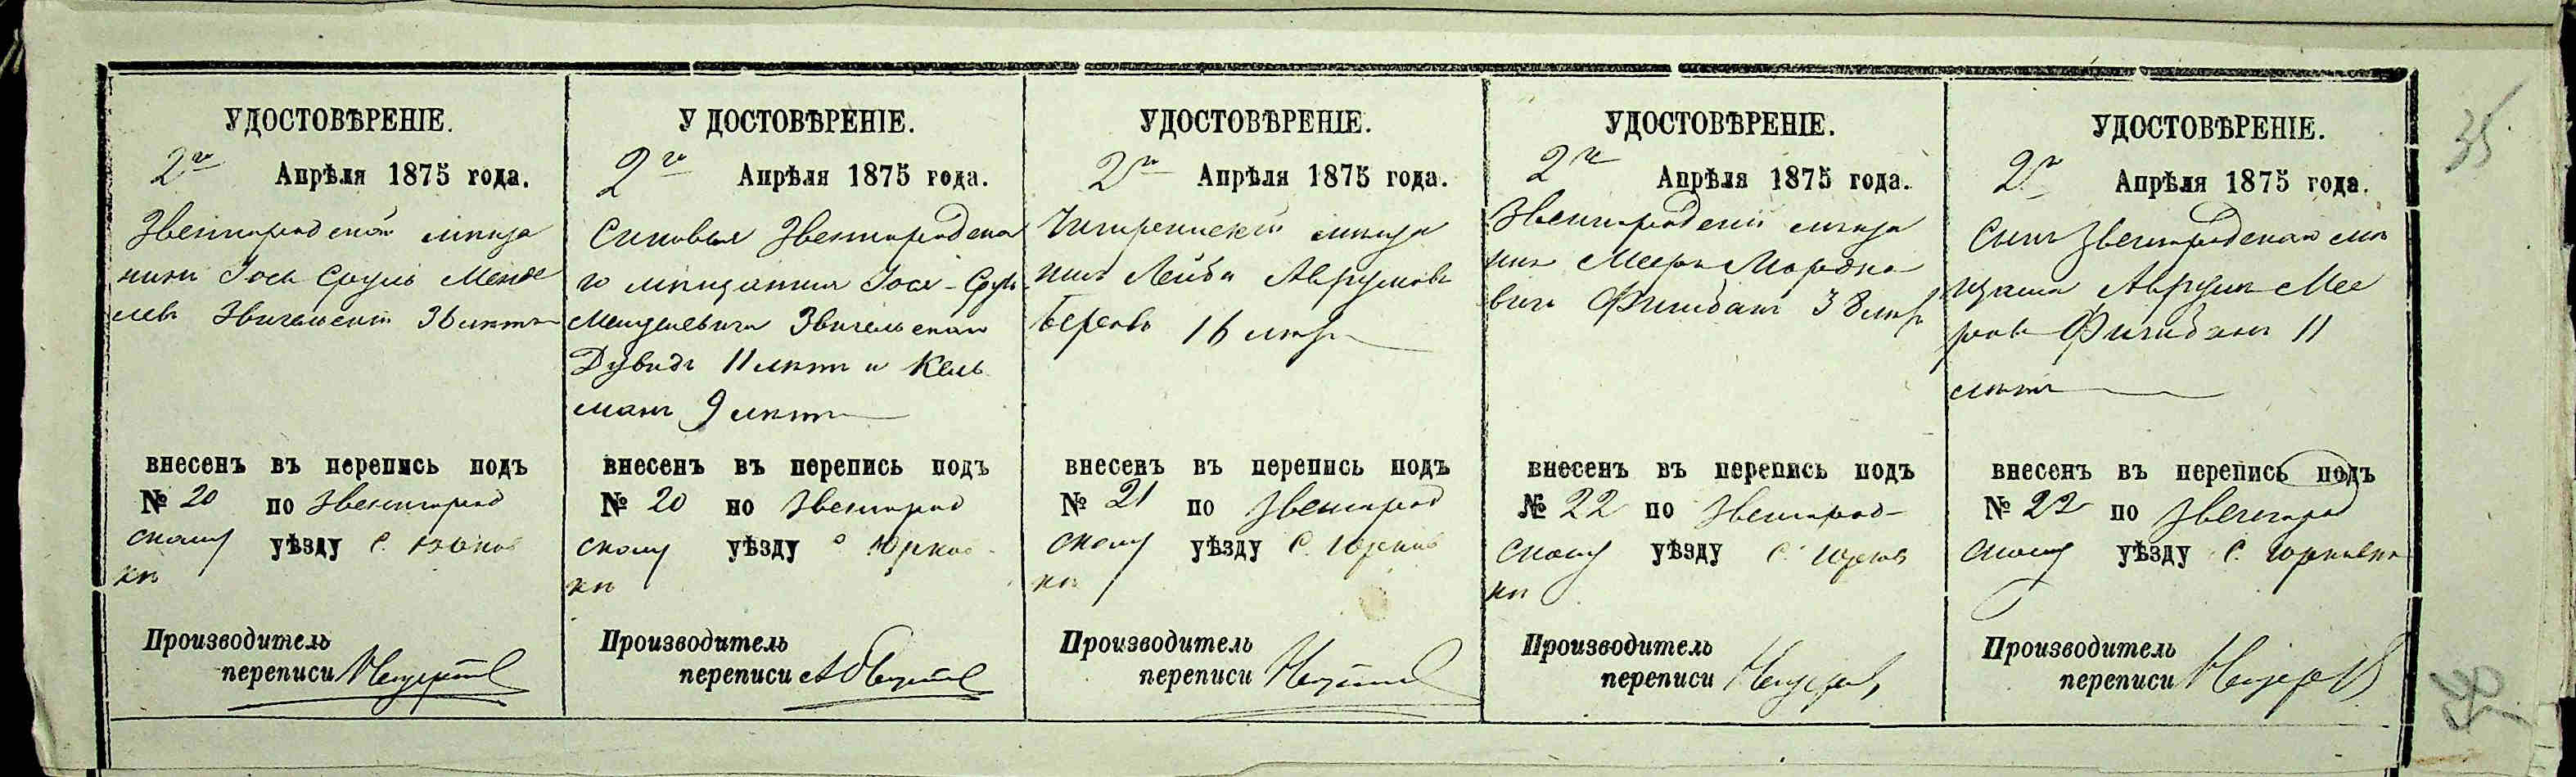 УДОСТОВѢРЕНІЕ.
2го Апрѣля 1875 года.
Звенигородскій мѣща
нинъ Іось Сруль Менде
левъ Звигельскій 36 лѣтъ
внесенъ въ перепись подъ
№ 20 по Звенигород
скому уѣзду с. Юрков
кѣ
Производитель
переписи
У ДОСТОВѢРЕНІЕ.
2го Апрѣля 1875 года.
Сыновья Звенигородска
го мѣщанина Іося-Сруля
Менделевича Звигельскаго
Дувидъ 11 лѣтъ и Кель
манъ 9 лѣтъ
внесенъ въ перепись подъ
№ 20 по Звенигород
скому уѣзду с Юрков
кѣ
Производитель
переписи
УДОСТОВѢРЕНІЕ.
2го Апрѣля 1875 года.
Чигиринскій мѣща
нинъ Лейба Аврумовъ
Берковъ 16 лѣтъ
внесенъ въ перепись подъ
№ 21 по Звенигород
скому уѣзду с. Юрков
кѣ
Производитель
переписи
УДОСТОВѢРЕНІЕ.
2го Апрѣля 1875 года.
Звенигородскій мѣща
нинъ Мееръ Мордко
вичъ 38 лѣтъ
внесенъ въ перепись подъ
№ 22 по Звенигород-
скому уѣзду с. Юрков
кѣ
Производитель
переписи
УДОСТОВѢРЕНІЕ.
2го Апрѣля 1875 года.
Сынъ Звенигородскаго мѣ
щанина Аврумъ Мее
ровъ 11
лѣтъ
внесенъ въ перепись подъ
№ 22 по Звенигород
скому уѣзду с. Юрковкѣ
Производитель
переписи
35